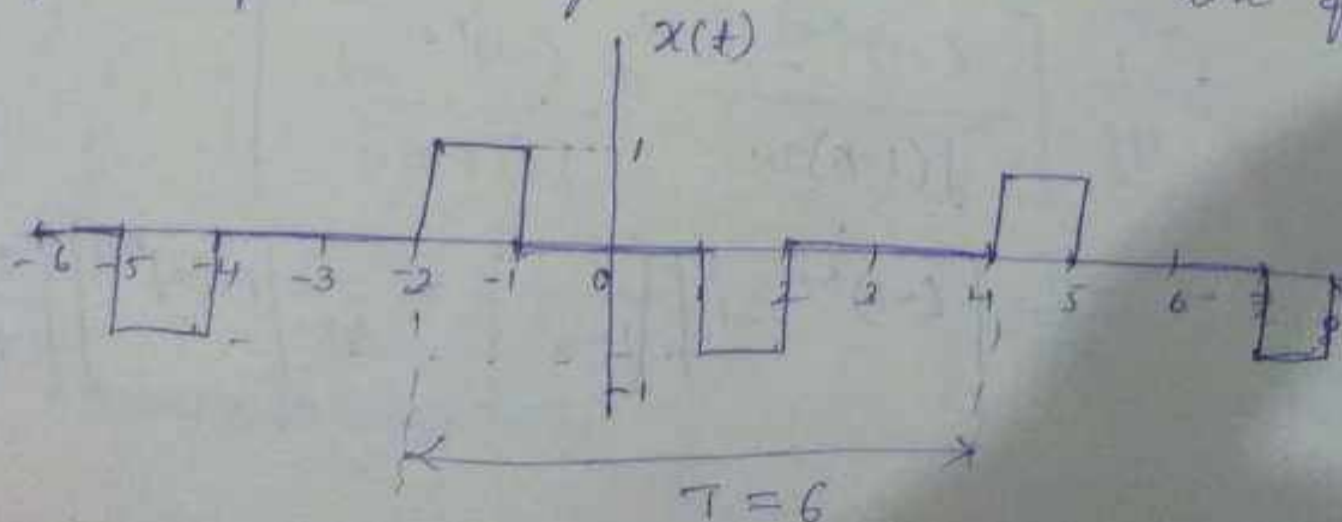 x(t)
1
-6 -5 -4 -3 -2 -1 0 1 2 3 4 5 6 7 8
-1
T = 6